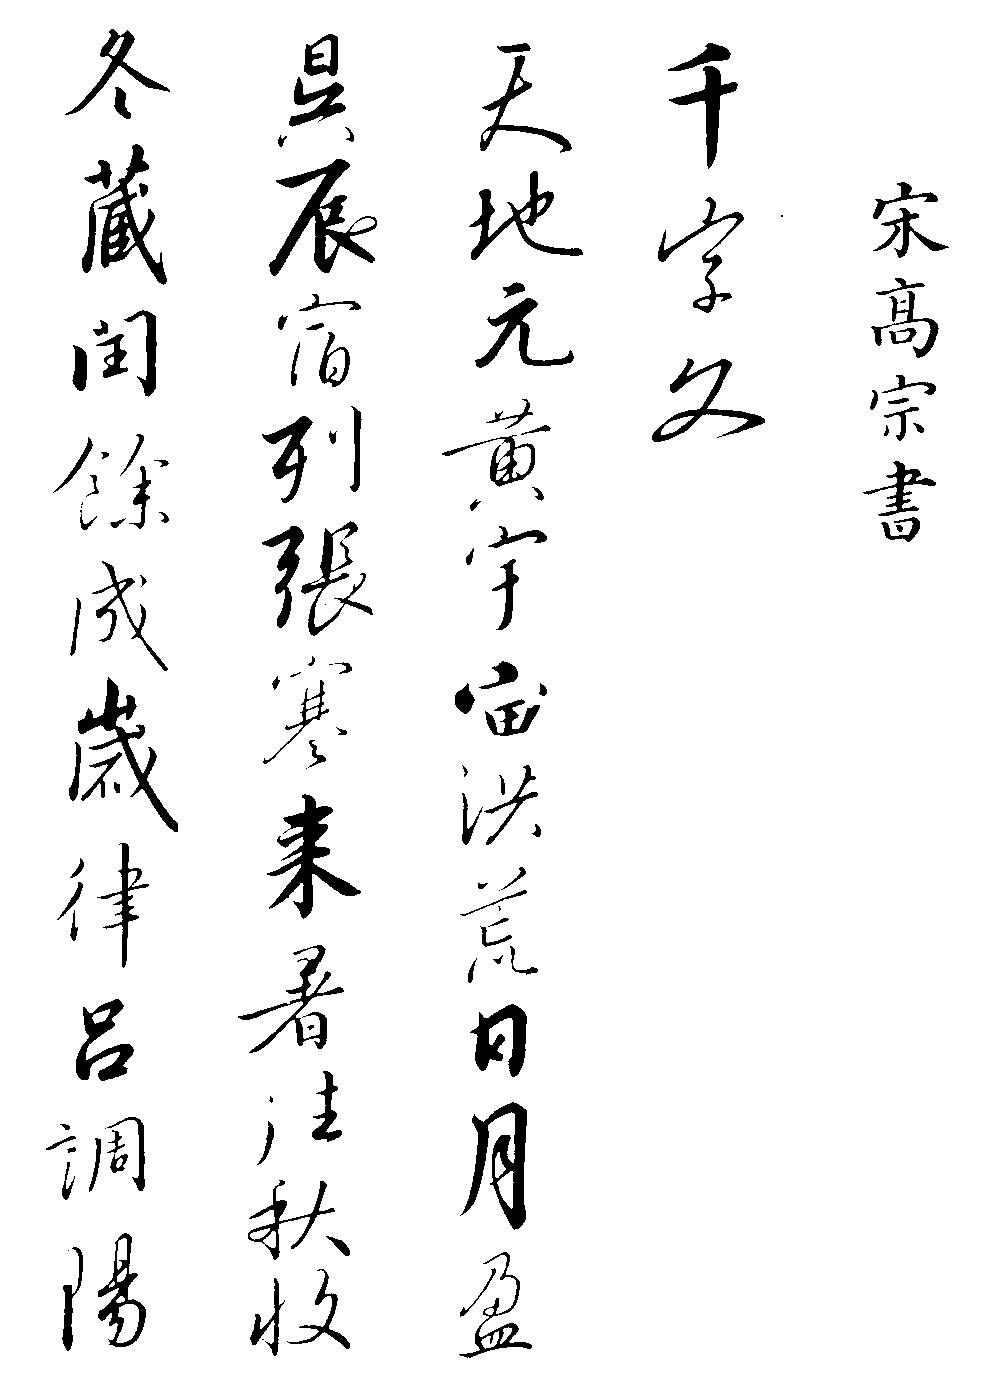 宋高宗書
千字文
天地元黄宇宙洪荒日月盈
昃辰宿列張寒来暑往秋收
冬藏閏餘成歲律呂調陽